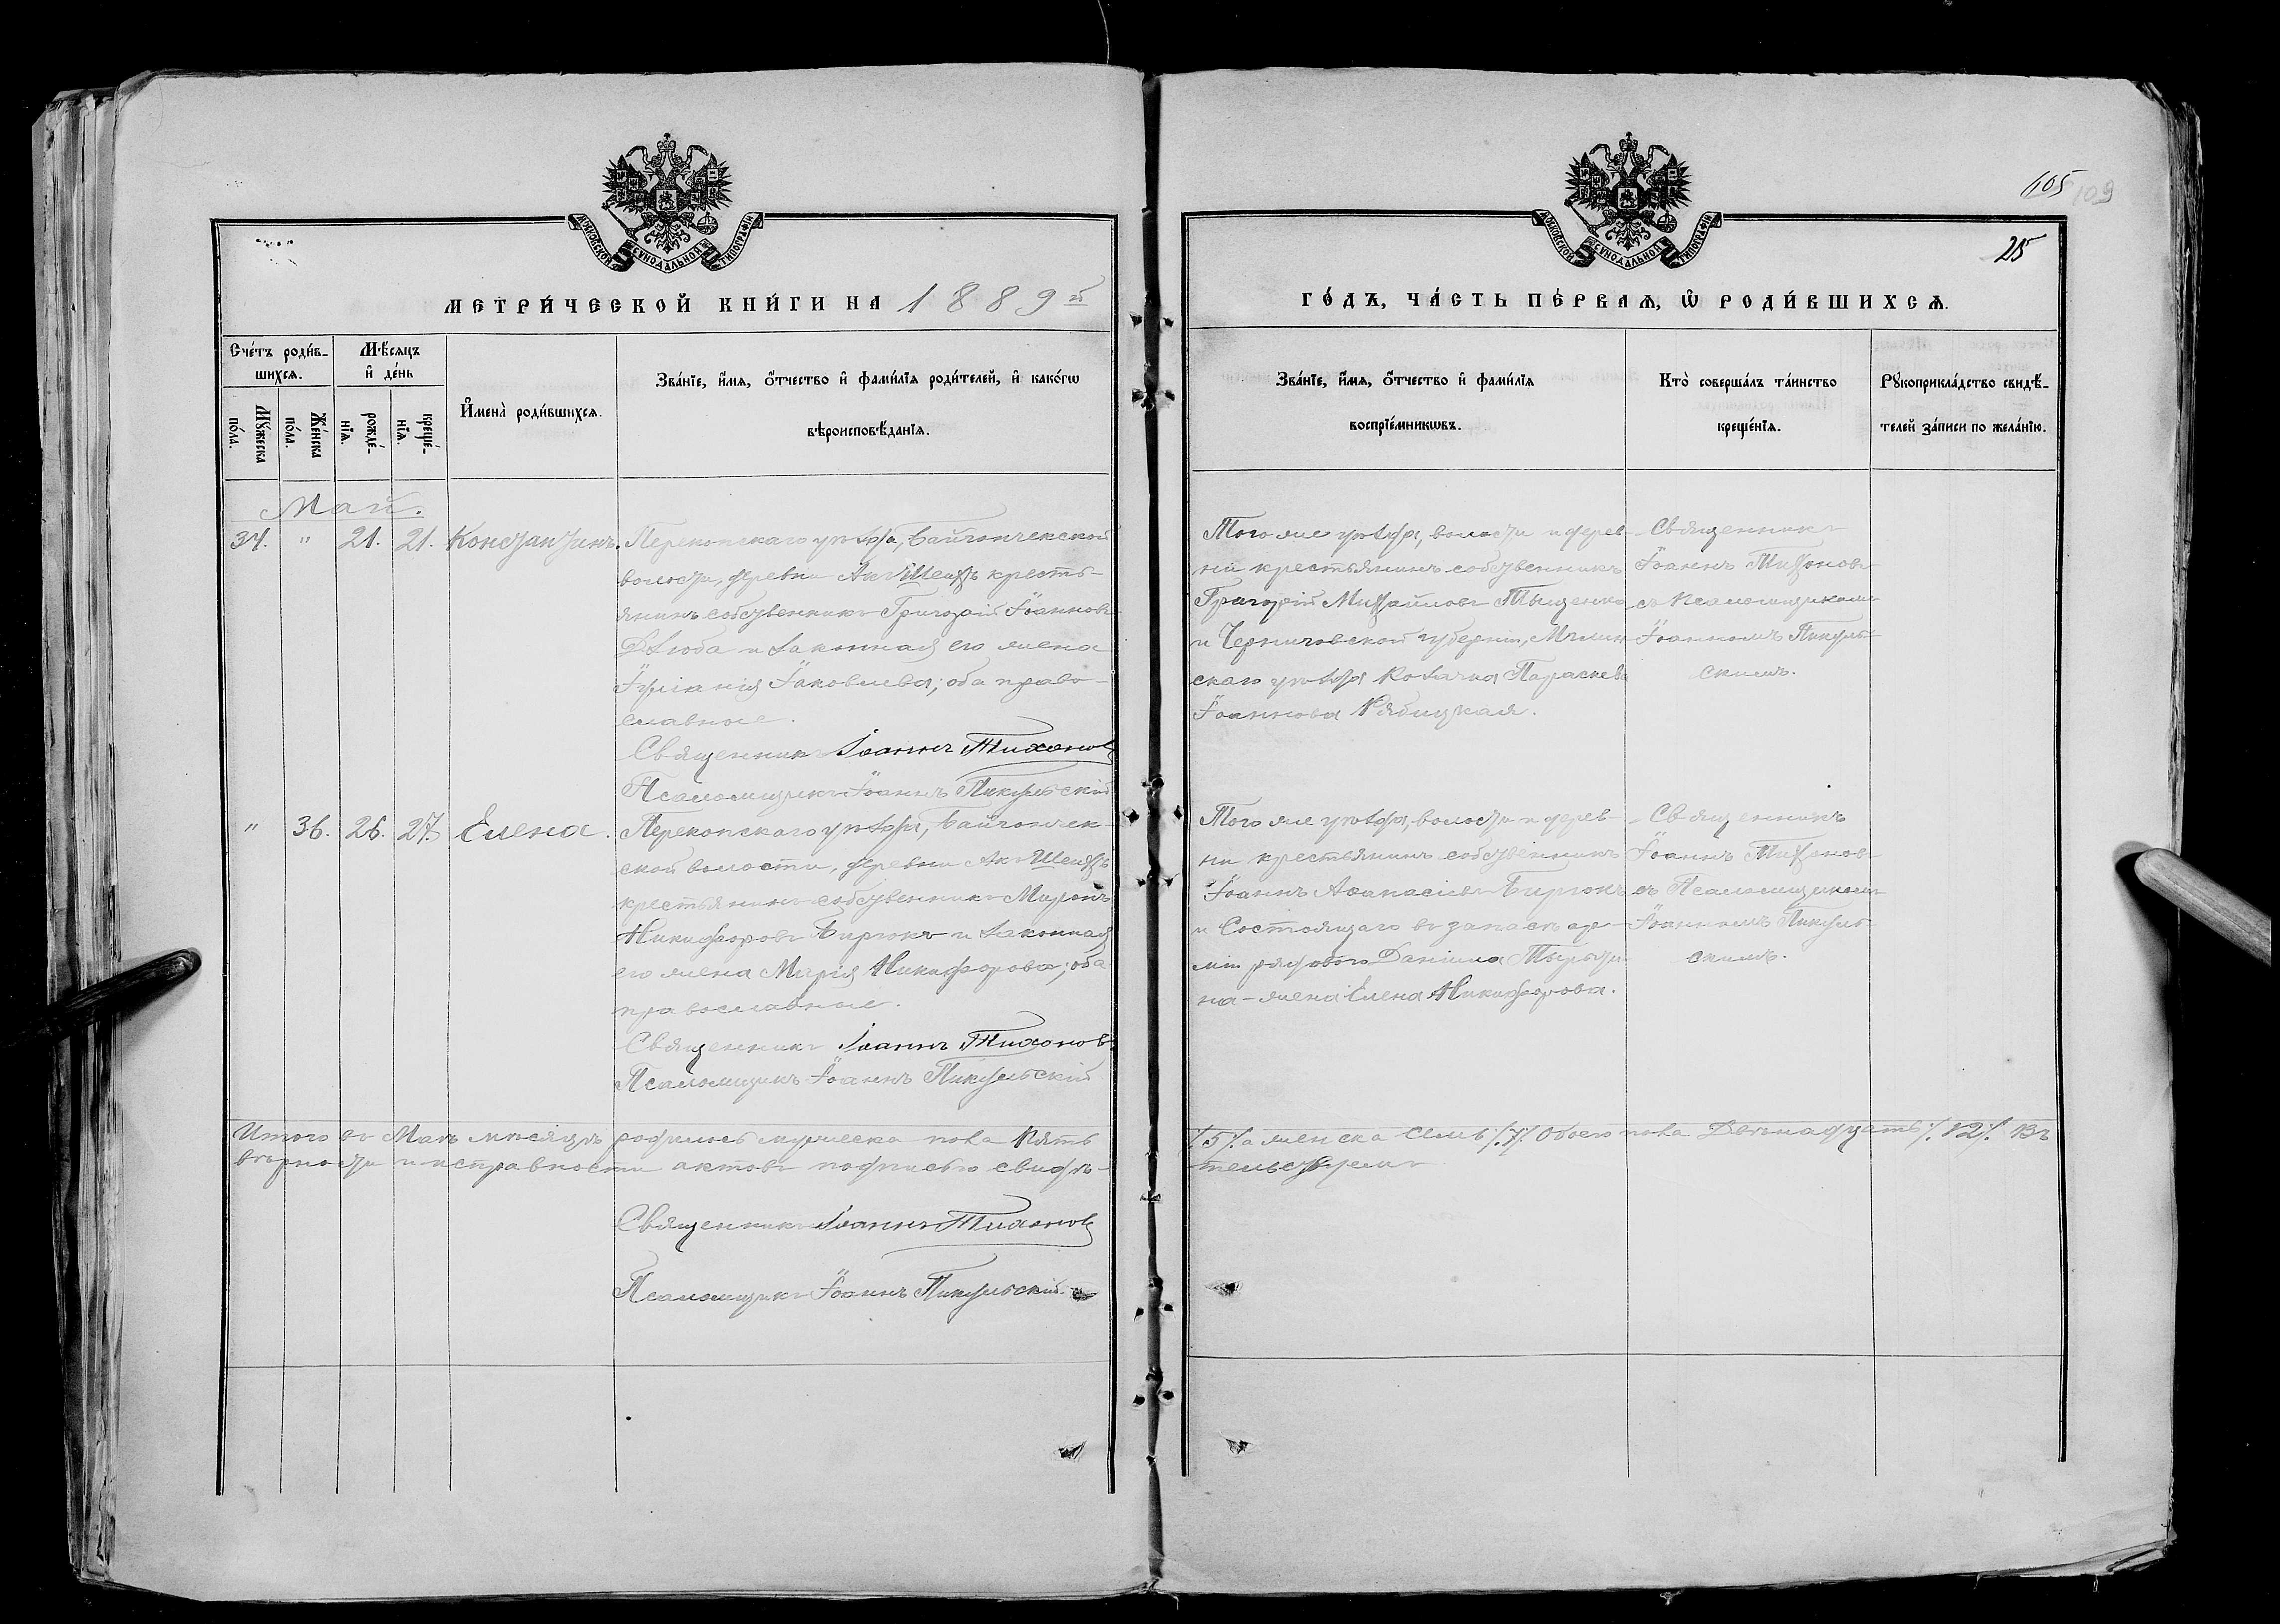 105 109
25
МОСКОВСКОЙ СУНОДАЛЬНОЙ ТИПОГРАФІИ
МОСКОВСКОЙ СУНОДАЛЬНОЙ ТИПОГРАФІИ
МЕТРИ́ЧЕСКОЙ КНИ́ГИ НА 1889й
ГО́ДЪ, ЧА́СТЬ ПЕ́РВАѦ, Ѡ҆ РОДИ́ВШИХСѦ.
Сче́тъ роди́в-
шихсѧ.
Мѣ́сѧцъ
и҆ де́нь
Мꙋ́жеска
по́ла.
Же́нска
по́ла.
рожде́-
нїѧ.
креще́-
нїѧ.
И҆мена̀ роди́вшихсѧ.
Зва́нїе, и҆́мѧ, ѻ҆́тчество и҆ фами́лїѧ роди́телей, и҆ како́гѡ
вѣроисповѣ́данїѧ.
Зва́нїе, и҆́мѧ, ѻ҆́тчество и҆ фами́лїѧ
воспрїе́мникѡвъ.
Кто̀ соверша́лъ та́инство
креще́нїѧ.
Рꙋкоприкла́дство свидѣ́-
телей за́писи по жела́нїю.
Май.
" 21. 21. Константинъ.
Перекопскаго уѣзда, Байгончекской
волости, деревни Акъ Шеихъ кресть-
янинъ собственникъ Григорій Іоанновъ
Дзюба и законная его жена
Іуліанія Іаковлева; оба право-
славные.
Священникъ Іоаннъ Тихоновъ
Псаломщикъ Іоаннъ Пикульскій
Того же уѣзда, волости и дерев-
ни крестьянинъ собственникъ
Григорій Михайловъ Тыщенко
и Черниговской губерніи, Мглин-
скаго уѣзда козачка Параскева
Іоаннова Рябицкая.
Священникъ
Іоаннъ Тихоновъ
съ Псаломщикомъ
Іоанномъ Пикуль-
скимъ.
" 36. 26. 27. Елена.
Перекопскаго уѣзда, Байгончек-
ской волости, деревни Акъ Шеихъ
крестьянинъ собственникъ Миронъ
Никифоровъ Бирюкъ и законная
его жена Марія Никифорова; оба
православные.
Священникъ Іоаннъ Тихоновъ
Псаломщикъ Іоаннъ Пикульскій
Того же уѣзда, волости и дерев-
ни крестьянинъ собственникъ
Іоаннъ Аѳанасіевъ Бирюкъ
и Состоящаго въ запасѣ ар-
міи рядового Даніила
на - жена Елена Никифорова.
Священникъ
Іоаннъ Тихоновъ
съ Псаломщикомъ
Іоанномъ Пикуль-
скимъ.
Итого въ Маѣ мѣсяцѣ родилось мужеска пола Пять
/.5/. а женска семь /.7/. Обоего пола Двѣнадцать /.12/. Въ
вѣрности и исправности актовъ подписью свидѣ-
тельствуемъ
Священникъ Іоаннъ Тихоновъ
Псаломщикъ Іоаннъ Пикульскій